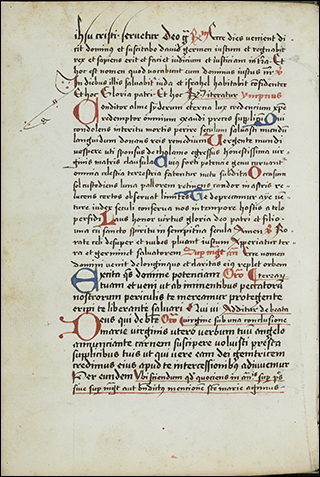 ihsu cristi seruetur deo g Ecce dies venient di
cit dominus et suscitabo dauid germen iustum et regnabit
rex et sapiens erit et faciet iudicium et iusticiam in tra Et
hoc est nomen quod vocabunt eum dominus iustus nr
In diebus illis saluabit iuda et israhel habitabit confidenter
Et hoc Gloria patri Et hoc iteratur Ympnus
Conditor alme syderum eterna lux credentium xpe
redemptor omnium exaudi preces supplicum Qui
condolens interitu mortis perire seculum saluasti mundu
languidum donans reis remedium Uergente mundi
vespere vti sponsus de thalamo egressus honestissima vir
ginis matris clausula Cuius forti potencie genu curuant
omnia celestia terrestria fatentur nutu subdita Occasum
sol custodiens luna pallorem retinens candor in astris re
lucens certos obseruat limites Te deprecamur agie ve
ture iudex seculi conserua nos in tempore hostis a telo
perfidi Laus honor virtus gloria deo patri et filio si
mul cu sancto spiritu in sempiterna secula Amen Ro
rate celi desuper et nubes pluant iustum Aperiatur ter
ra et germinet saluatorem Sup Ecce nomen
domini venit de longinquo et claritas eius replet orbem
Excita qs domine potenciam Oro terrarum
tuam et veni ut ab iminentibus peccatorum
nostrorum periculis te mereamur protegente
eripi te liberante saluari Qui vi Additur de beata
Deus qui de bte Oro virgine sub una conclusione
marie virginis utero verbum tuum angelo
annunciante carnem suscipere voluisti presta
supplicibus tuis ut qui vere eam dei genitricem
credimus eius apud te intercessionibus adiuuemur
Per eundem Ubi sciendum quod quociens in
siue sup aut mencione marie agimus